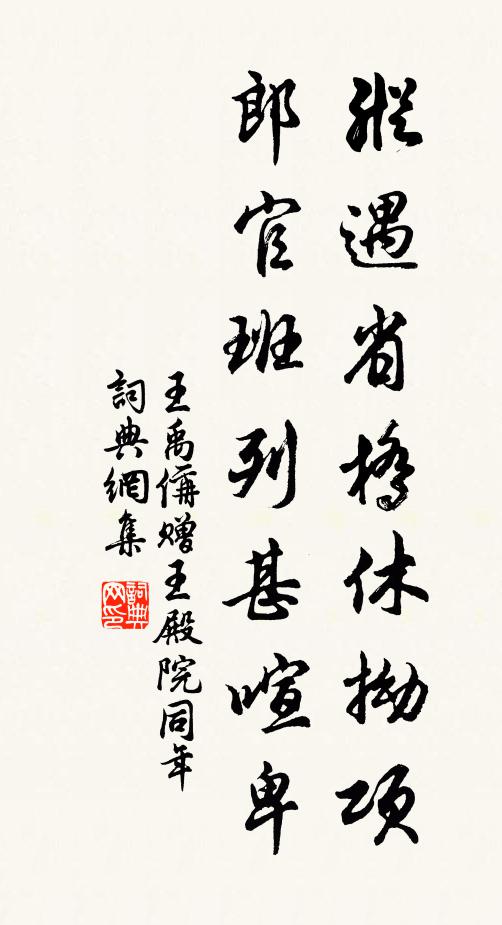 縱遇省橋休拗項
郎官班列甚喧卑
王禹偁贈王殿院同年
詞典網集
詞典網印